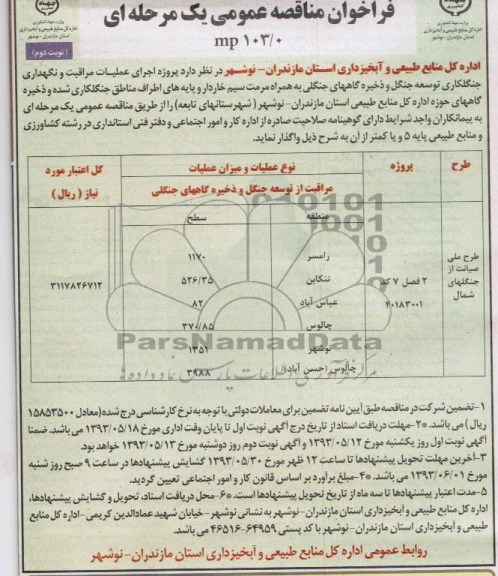 فراخوان مناقصه عمومی یک مرحله ای
mp ۱۰۳/۰
وزارت جهاد کشاورزی
( نوبت دوم )
اداره کل منابع طبیعی و آبخیزداری استان مازندران- نوشهر در نظر دارد پروژه اجرای عملیات مراقبت و نگهداری
جنگلکاری توسعه جنگل و ذخیره گاههای جنگلی به همراه مرمت سیم خاردار و پایه های اطراف مناطق جنگلکاری شده و ذخیره
گاههای حوزه اداره کل منابع طبیعی استان مازندران-نوشهر ( شهرستانهای تابعه) را از طریق مناقصه عمومی یک مرحله ای
به پیمانکاران واجد شرایط دارای گوهینامه صلاحیت صادره از اداره کار و امور اجتماعی و دفتر فنی استانداری در رشته کشاورزی
و منابع طبیعی پایه ۵ و یا کمتر از آن به شرح ذیل واگذار نماید.
طرح پروژه نوع عملیات و میزان عملیات کل اعتبار مورد
مراقبت از توسعه جنگل و ذخیره گاههای جنگلی نیاز ( ریال )
منطقه سطح
طرح ملی صیانت از جنگلهای شمال
۲ فصل ۷ کد ۴۰۱۸۳۰۰۱
رامسر ۱۱۷۰
تنکابن ۵۲۶/۳۵
عباس آباد ۸۲
چالوس ۳۷۰/۸۵
نوشهر ۱۳۵۱
چالوس (حسن آباد) ۳۹۸۸
۳۱۱۷۸۲۶۷۱۲
ParsNamadData
مرکز فرآوری اطلاعات پارس نماد داده ها
۱-تضمین شرکت در مناقصه طبق آیین نامه تضمین برای معاملات دولتی با توجه به نرخ کارشناسی درج شده(معادل ۱۵۸۵۳۵۰۰
ریال ) می باشد. ۲۰-مهلت دریافت اسناد از تاریخ درج آگهی نوبت اول تا پایان وقت اداری مورخ ۱۳۹۳/۰۵/۱۸ می باشد. ضمنا
آگهی نوبت اول روز یکشنبه مورخ ۱۳۹۳/۰۵/۱۲ و آگهی نوبت دوم روز دوشنبه مورخ ۱۳۹۳/۰۵/۱۳ خواهد بود.
۳-آخرین مهلت تحویل پیشنهادها تا ساعت ۱۲ ظهر مورخ ۱۳۹۳/۰۵/۳۰ گشایش پیشنهادها در ساعت ۹ صبح روز شنبه
مورخ ۱۳۹۳/۰۶/۰۱ می باشد. ۴۰-مبلغ برآورد بر اساس قانون کار و امور اجتماعی تعیین گردید.
۵-مدت اعتبار پیشنهادها تا سه ماه از تاریخ تحویل پیشنهادها است. ۶۰- محل دریافت اسناد، تحویل و گشایش پیشنهادها،
اداره کل منابع طبیعی و آبخیزداری استان مازندران-نوشهر به نشانی نوشهر- خیابان شهید عمادالدین کریمی-اداره کل منابع
طبیعی و آبخیزداری استان مازندران-نوشهر با کد پستی ۶۴۹۵۹-۴۶۵۱۶ می باشد.
روابط عمومی اداره کل منابع طبیعی و آبخیزداری استان مازندران- نوشهر